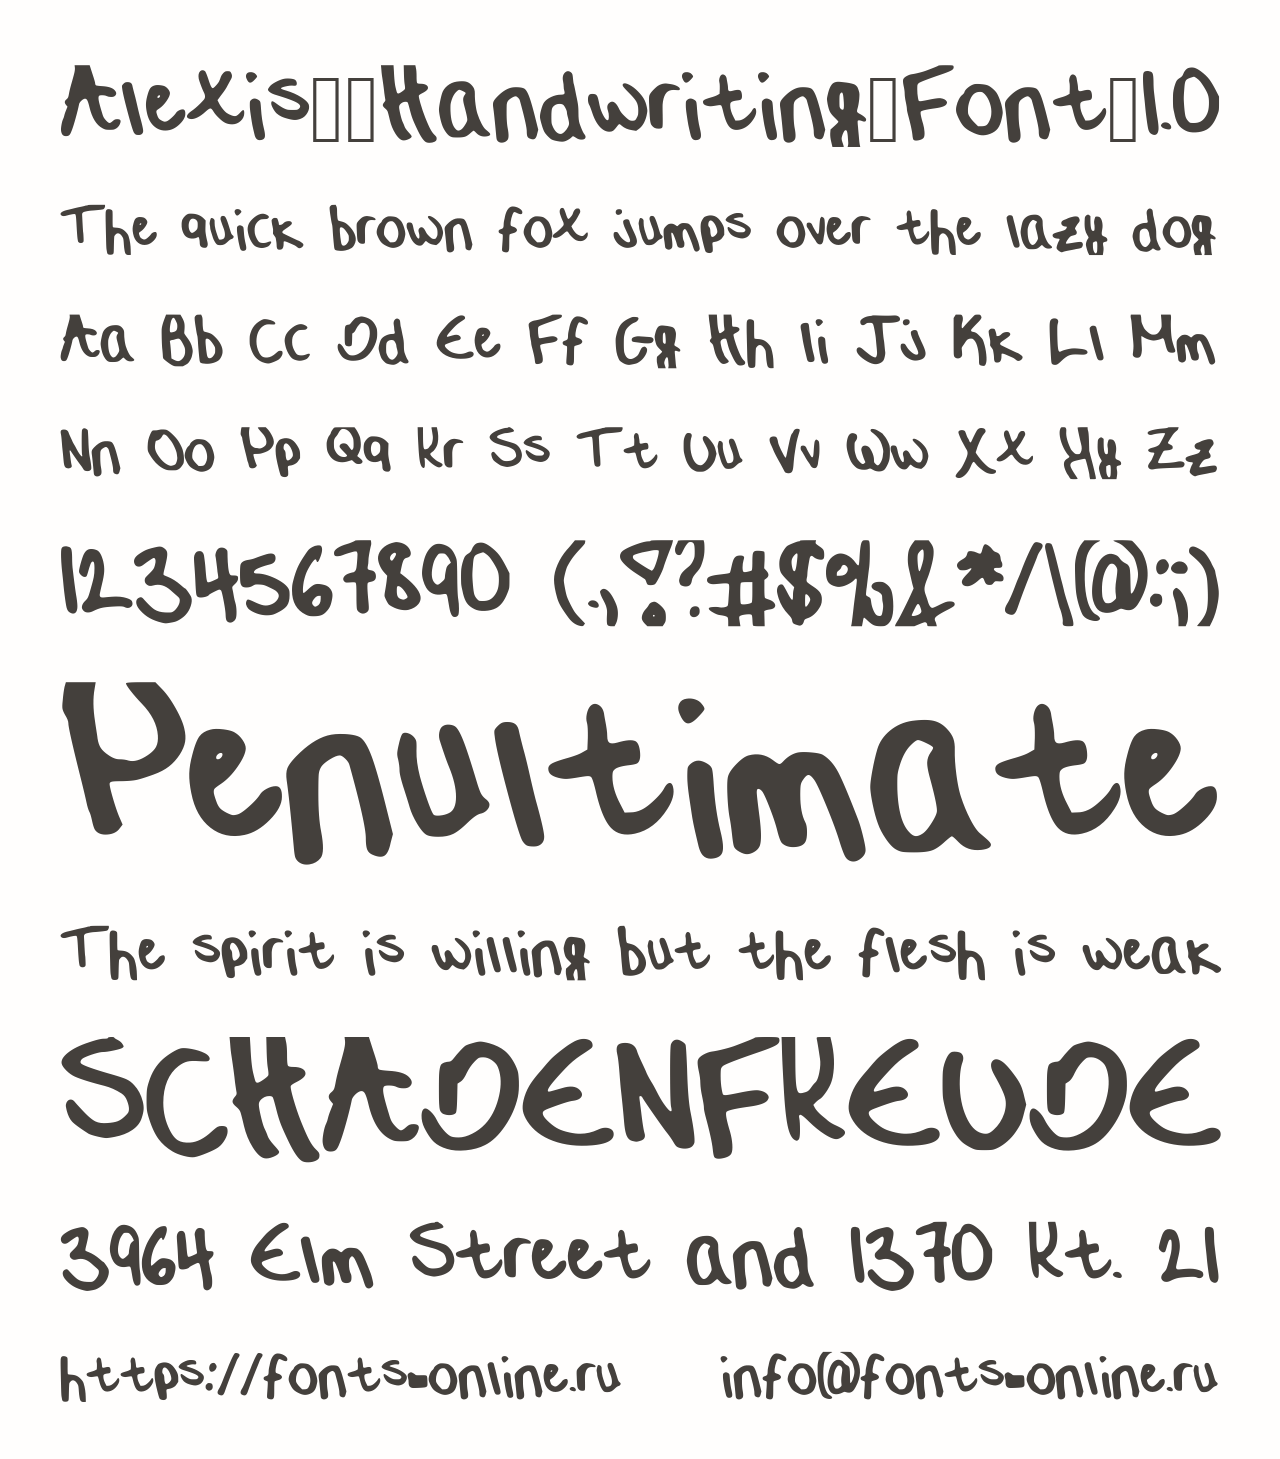 Alexis▯▯Handwriting▯Font▯1.0
The quick brown fox jumps over the lazy dog
Aa Bb Cc Dd Ee Ff Gg Hh Ii Jj Kk Ll Mm
Nn Oo Pp Qq Rr Ss Tt Uu Vv Ww Xx Yy Zz
1234567890 (.,!?#$%&*/\(@:;)
Penultimate
The spirit is willing but the flesh is weak
SCHADENFREUDE
3964 Elm Street and 1370 Rt. 21
https://fonts-online.ru info@fonts-online.ru